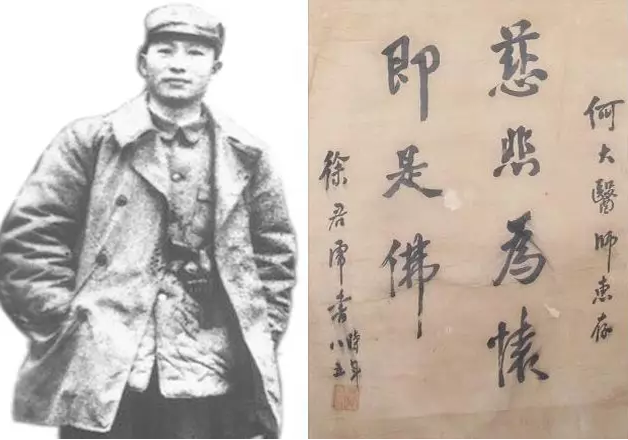 何大醫師惠存
慈悲為懷
即是佛
徐君 書 時年八五